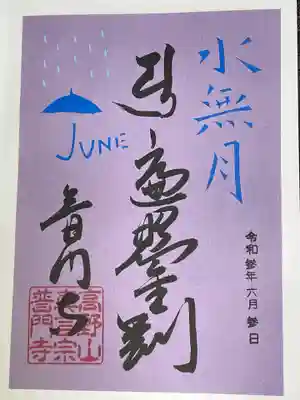 水無月
JUNE
遍照金剛
令和參年六月參日
普門寺
高野山
真言宗
普門寺